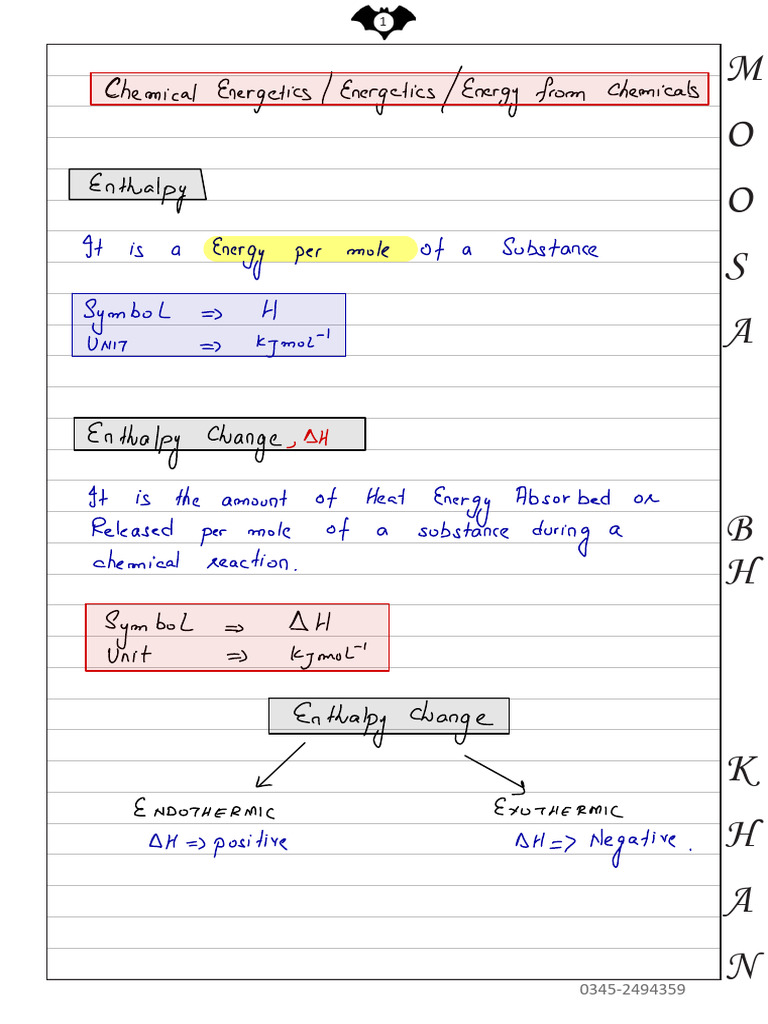 1
Chemical Energetics / Energetics / Energy from Chemicals
Enthalpy
It is a Energy per mole of a Substance
Symbol ⇒ H
UNIT ⇒ kJmol⁻¹
Enthalpy Change, ΔH
It is the amount of Heat Energy Absorbed or
Released per mole of a substance during a
chemical reaction.
Symbol ⇒ ΔH
Unit ⇒ kJmol⁻¹
Enthalpy change
ENDOTHERMIC EXOTHERMIC
ΔH ⇒ positive ΔH => Negative.
MOOSA BH KHAN
0345-2494359